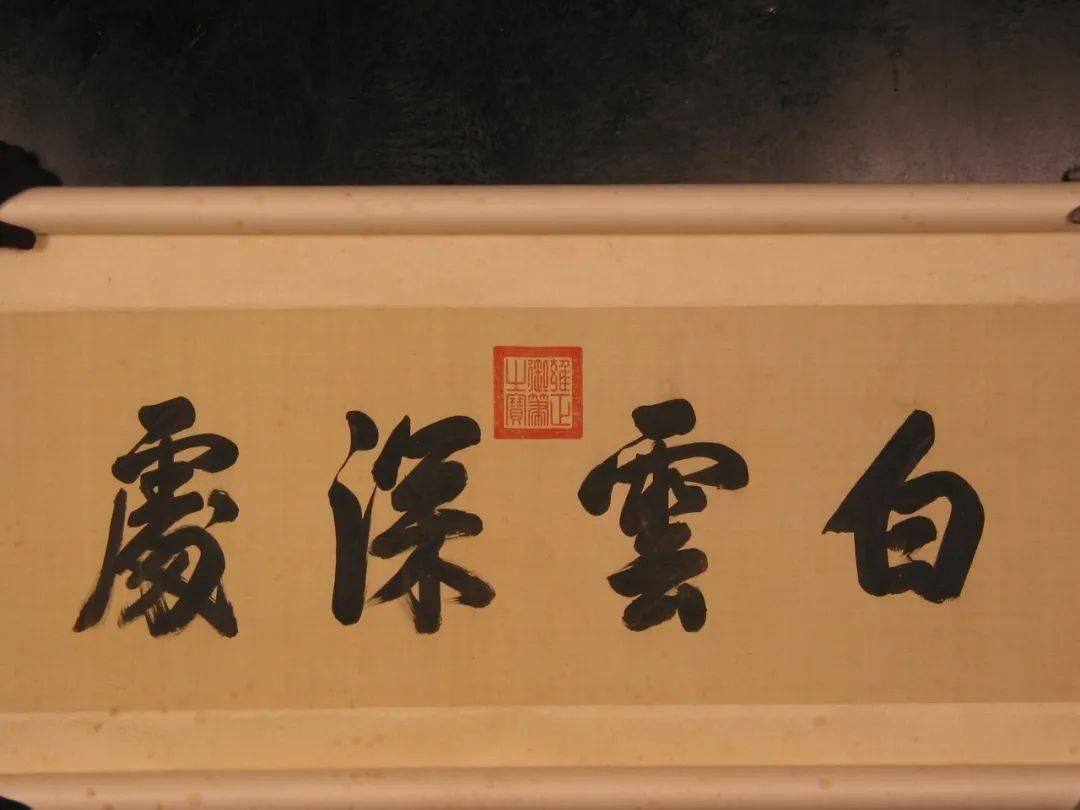 白雲深處
雍正御筆之寶